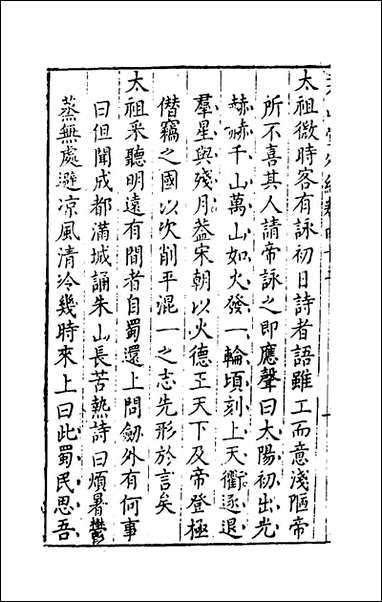 太祖微時客有詠初日詩者語雖工而意淺陋帝
所不喜其人請帝詠之即應聲曰太陽初出光
赫赫千山萬山如火發一輪頃刻上天衢逐退
羣星與殘月葢宋朝以火德王天下及帝登極
僣竊之國以次削平混一之志先形於言矣
太祖釆聽明遠有間者自蜀還上問劒外有何事
曰但聞成都滿城誦朱山長苦熱詩曰煩暑鬱
蒸無處避凉風清冷幾時來上曰此蜀民思吾